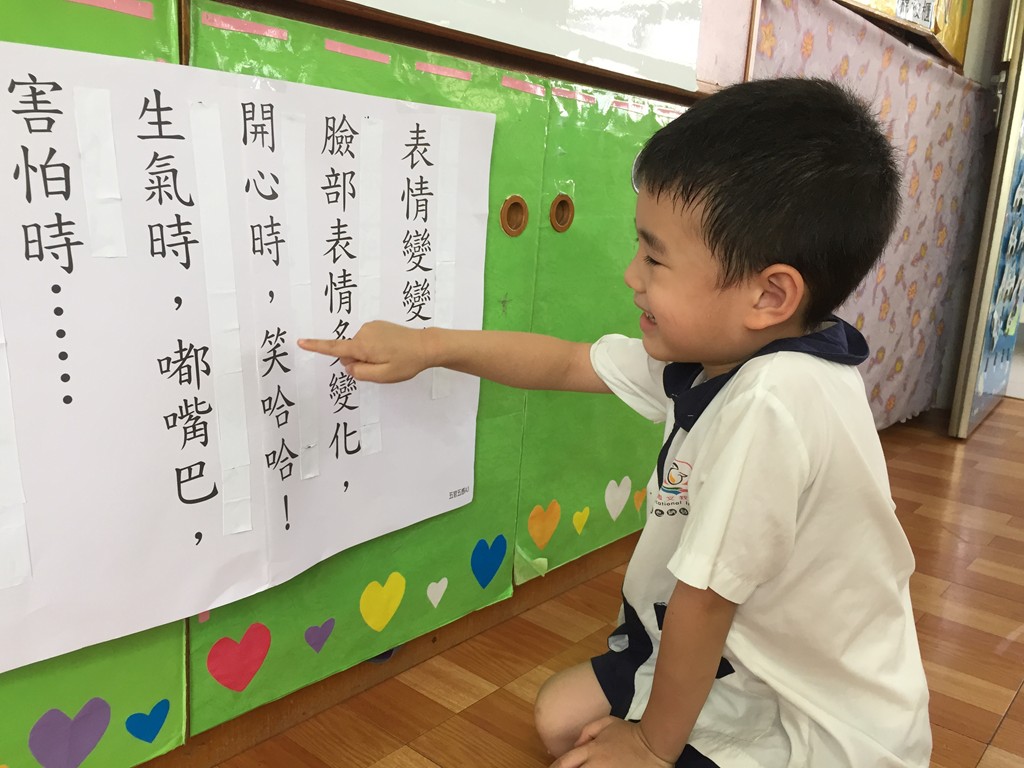 表情變變
臉部表情多變化，
開心時，笑哈哈！
生氣時，嘟嘴巴，
害怕時……